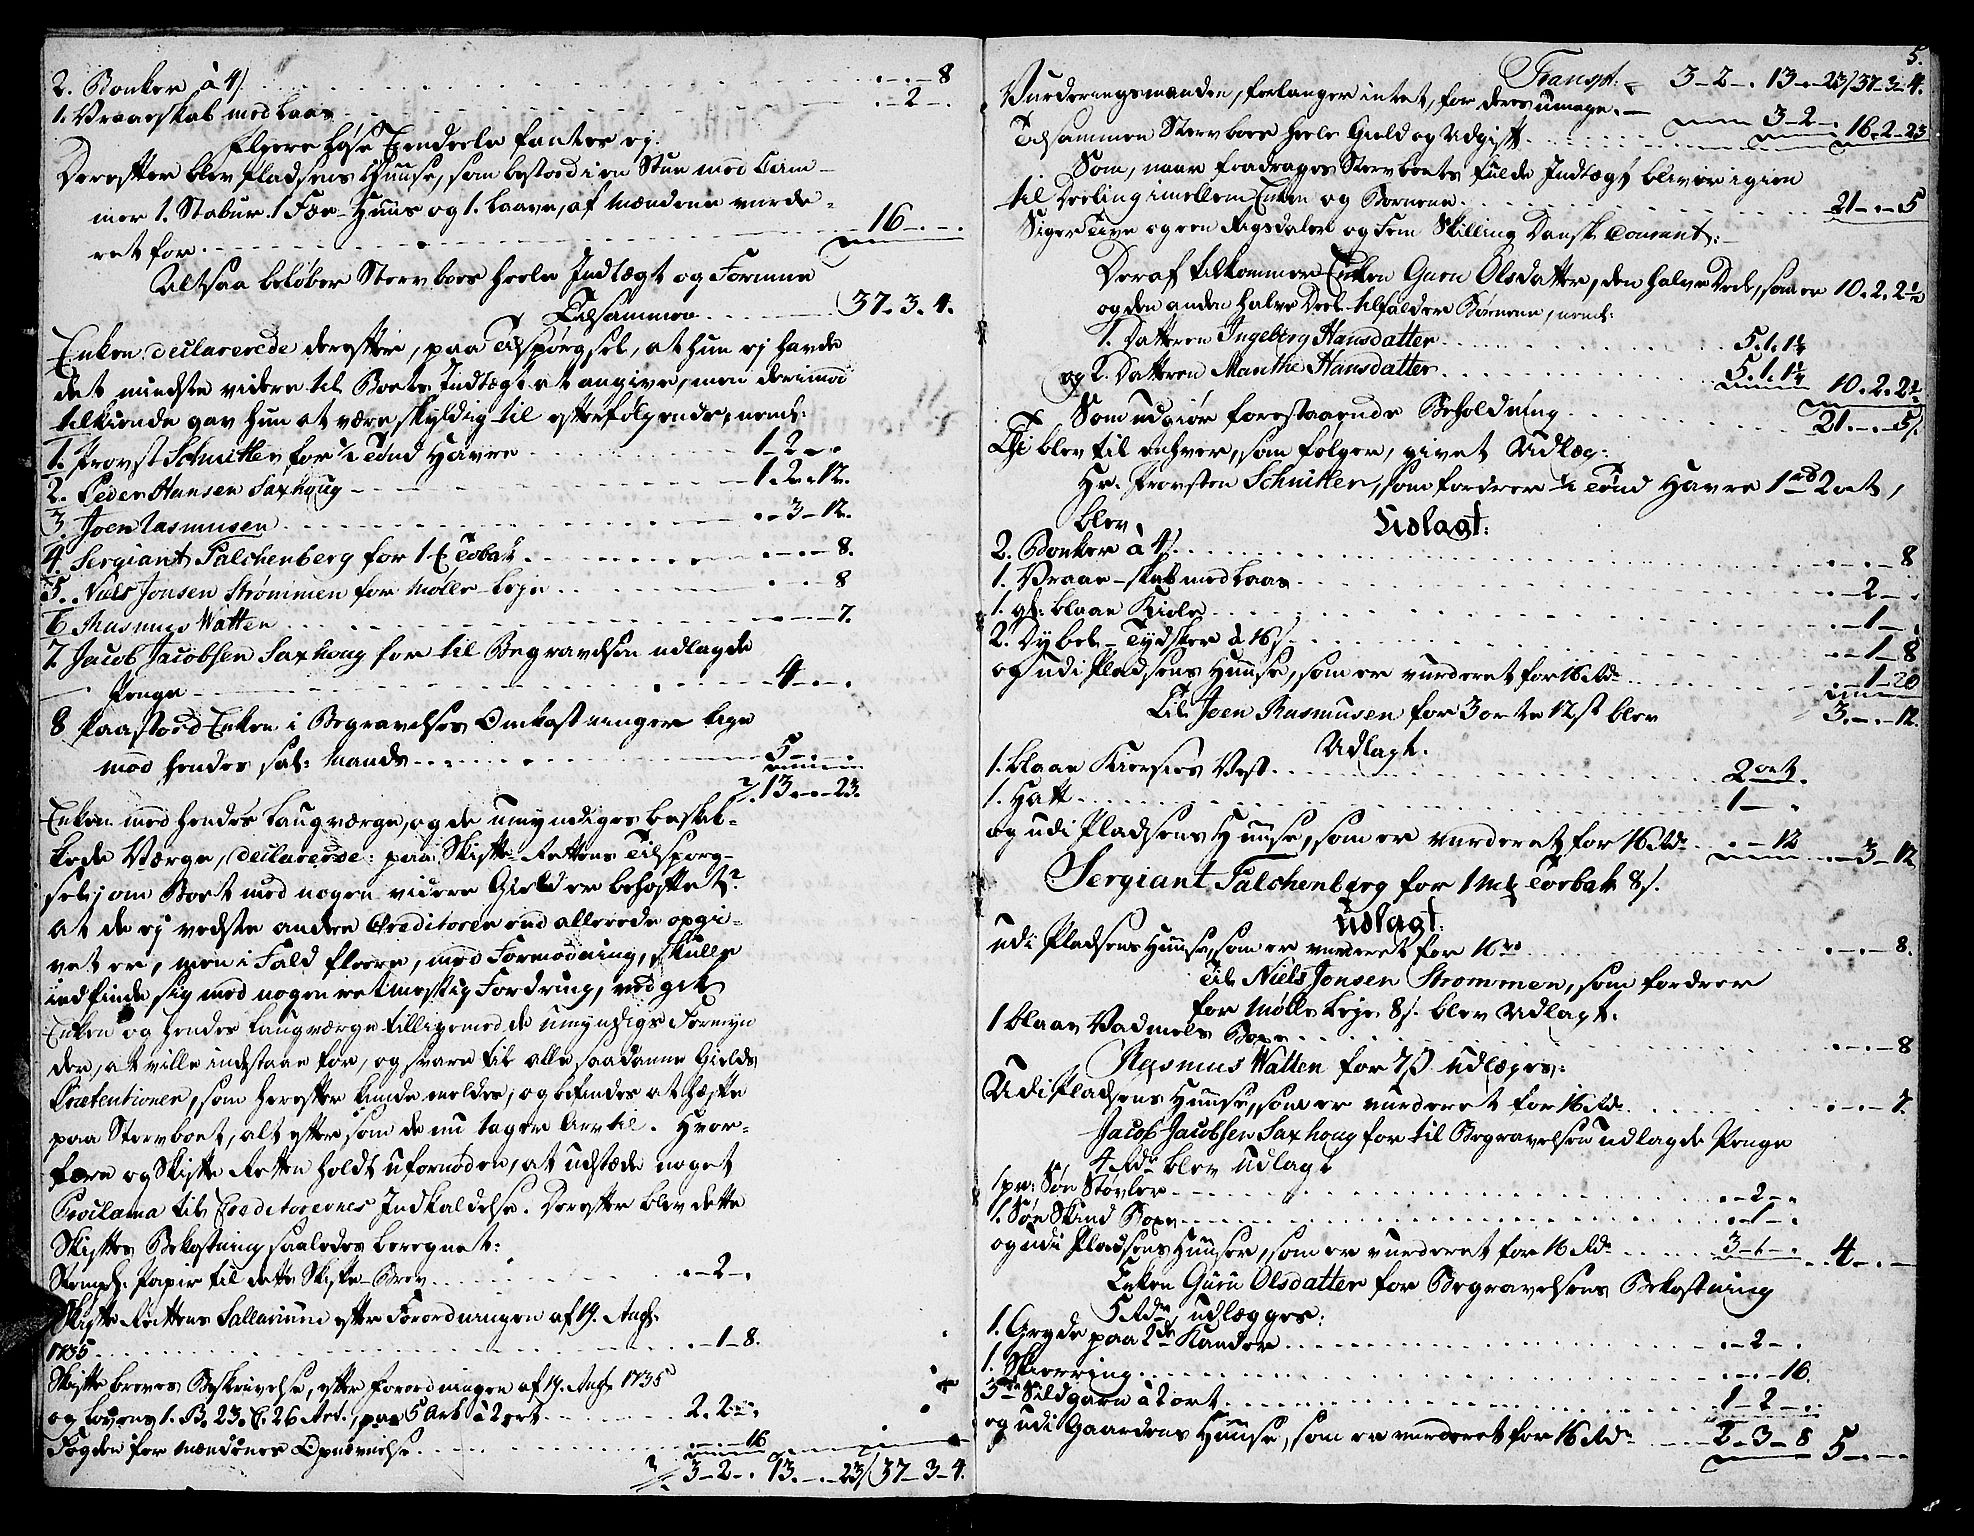 2. Bonker à 4 s. . . . . - . - 8
1. Vraaeskab med Laas . . . . - 2 - .
Fleere løse Eendeele fantes ej.
Derefter blev Pladsens Huuse, som bestoed i en Stue med Cam-
mer 1. Stabur. 1 Fæe-Huus og 1. Laave, af Mændene vurde-
ret for . . . . 16 - . - .
Altsaa beløber Stervboes heele Indtægt og Formue
Tilsammen . . . . 37 - 3 - 4.
Enken declarerede derefter, paa Tilspørgsel, at hun ej havde
det mindste videre til Boets Indtægt at angive, men derimod
tilkiende gav hun at være skyldig til efterfølgende, neml:
1. Provst Schnitler for 1/2 Tønd Havre . . . . 1 - 2 - .
2. Peder Hansen Saxhoug . . . . 1. 2 - 12.
3. Joen Rasmusen . . . . - 3 - 12.
4. Sergiant Falchenberg for 1 ℔ Tobak . . . . - . - 8.
5. Niels Jonsen Strømmen for Mølle-Leje . . . . - . - 8
6 Rasmus Watten . . . . - . - 7.
7. Jacob Jacobsen Saxhoug for til Begravelsen udlagde
Penge . . . . 4 - . - .
8 Paastoed Enken i Begravelses Omkostninger lige
mod hendes sal: Mand . . . . 5 - . - .
13 - . - 23.
Enken med hendes Laugværge, og de umyndiges beskik-
kede Værge, declarerede: paa Skifte-Rettens Tilspørg-
sel, om Boet med nogen videre Gield er behæftet?
at de ej vedste andre Creditorer end allerede opgi-
vet er, men i Fald fleere, mod Formodning, skulle
indfinde sig med nogen retmæssig Fordring, vedgik
Enken og hendes Laugværge tilligemed de umyndiges Formyn
der, at ville indstaae for, og svare til alle saadanne Gields
Prætentioner, som herefter kunde meldes, og befindes at hæfte
paa Stervboet, alt eftersom de nu tager Arv til. Hvor-
fore og Skifte Retten holdt ufornøden, at udstæde noget
Proclama til Creditorernes Indkaldelse. Derefter blev dette
Skiftes Bekostning saaledes beregnet:
Stempl: Papir til dette Skifte-Brev . . . . - 2 - .
Skifte Rettens Sallarium efter Forordningen af 19. Aug:
1735 . . . . - 1 - 8.
Skifte brevets Beskrivelse, efter forordningen af 19. Aug: 1735
og Lovens 1. B. 23. C. 26 Art., paa 5 Ark à 2 ort . . . . 2. 2 - .
Fogden for Mændenes Opnævnelse . . . . - . - 16
3 - 2 - . 13. - . - 23/ 37 - 3 - 4.
5.
Transpt. 3 - 2 - . 13 - . - 23/ 37 - 3 - 4.
Vurderingsmænden, forlanger intet, for deres umage. -
3 - 2 - .
Tilsammen Stervboes heele Gield og Udgift . . . . 16 - 2 - 23
Som, naar fradrages Stervboets fulde Indtægt bliver igien
til Deeling imellem Enken og Børnene . . . . 21 - . - 5
Siger Tive og een Rigsdaler og Fem Skilling Dansk Courant: -
Deraf tilkommer Enken Guru Olsdatter, den halve Deel, som er 10. 2. 2 1/2
og den anden halve Deel tilfalder Børnene, neml:
1. Datteren Ingeborg Hansdatter . . . . 5. 1. 1 1/4
og 2. Datteren Marithe Hansdatter . . . . 5. 1. 1 1/4 10. 2. 2 1/2
Som udgiør forestaaende Beholdning . . . . 21 - . - 5/.
Thi blev til enhver, som følger, givet Udlæg:
Hr. Provsten Schnitler, som fordrer 1/2 Tønd Havre 1 rd 2 ort,
blev
Udlagt:
2. Bonker à 4 s. . . . . - . - 8
1. Vraae-skab med Laas . . . . - 2 - .
1. gl: blaae Kiole . . . . - 1 - .
2. Dybel-Tydsker à 16 s. . . . . - 1 - 8
og udi Pladsens Huuse, som er vurderet for 16 Rdr . . . . 1 - 20
Til Joen Rasmusen for 3 ort 12 s blev 3. - . - 12.
Udlagt.
1. blaae Kiersies Vest . . . . 2 ort.
1. Hatt . . . . 1 - .
og udi Pladsens Huuse, som er vurderet for 16 Rdr . . - 12 . - 3 - 12
Sergiant Falchenberg for 1 mk Toebak 8 s.
Udlagt.
udi Pladsens Huuse, som er vurderet for 16 rd . . . . - . - 8.
Til Niels Jonsen Strømmen, som fordrer
for Mølle Leje 8 s. blev Udlagt.
1 blaae Vadmels Boxe . . . . - . - 8
Rasmus Watten for 7 s udlæges:
Udi Pladsens Huuse, som er vurderet for 16 Rdr . . . . - . - 7.
Jacob Jacobsen Saxhoug for til Begravelsen udlagde Penge
4 Rdr blev Udlagt
1 par: Søn Støvler . . . . - 2 - .
1. Søn Skind Boxe . . . . - 1 - .
og udi Pladsens Huuser, som er vurderet for 16 Rdr . . . . 3 - 1 - . 4 - . - .
Enken Guru Olsdatter for Begravelsens Bekostning
5 Rdr, udlægges:
1. Gryde paa 2de Kander . . . . - 2 - .
1. Skierring . . . . - . - 16.
3de Sildgarn à 2 ort . . . . 1 - 2 - .
og udi Gaardens Huuse, som er vurderet for 16 Rdr . . . . 2 - 3 - 8 5 - . - .